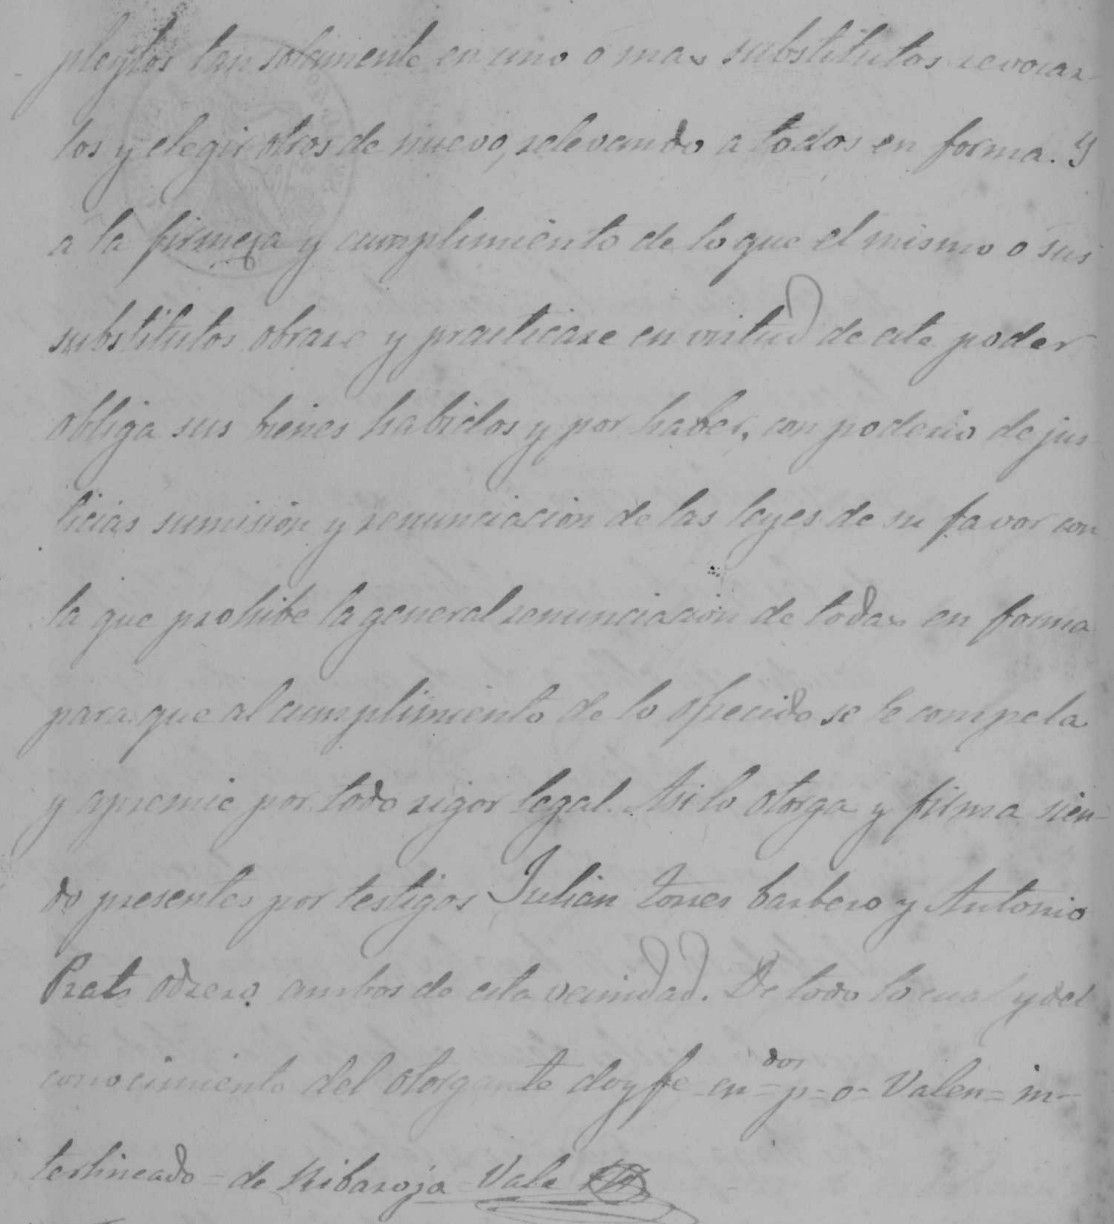 pleytos tan solamente en uno o mas substitutos revocar
los y elegir otros de nuevo, relevando a todos en forma. Y
a la firmeza y cumplimiento de lo que el mismo o sus
substitutos obrare y practicare en virtud de este poder
obliga sus bienes habidos y por haber, con poderio de jus-
ticias sumision y renunciacion de las leyes de su favor con
la que prohibe la general renunciacion de todas en forma
para que al cumplimiento de lo ofrecido se le compela
y apremie por todo rigor legal. Asi lo otorga y firma sien-
do presentes por testigos Julian torres barbero y Antonio
Prats obrero ambos de esta vecindad. De todo lo cual y del
conocimiento del otorgante doy fe - en = dor = p = o = Valen = in-
terlineado = de Ribaroja = Vale